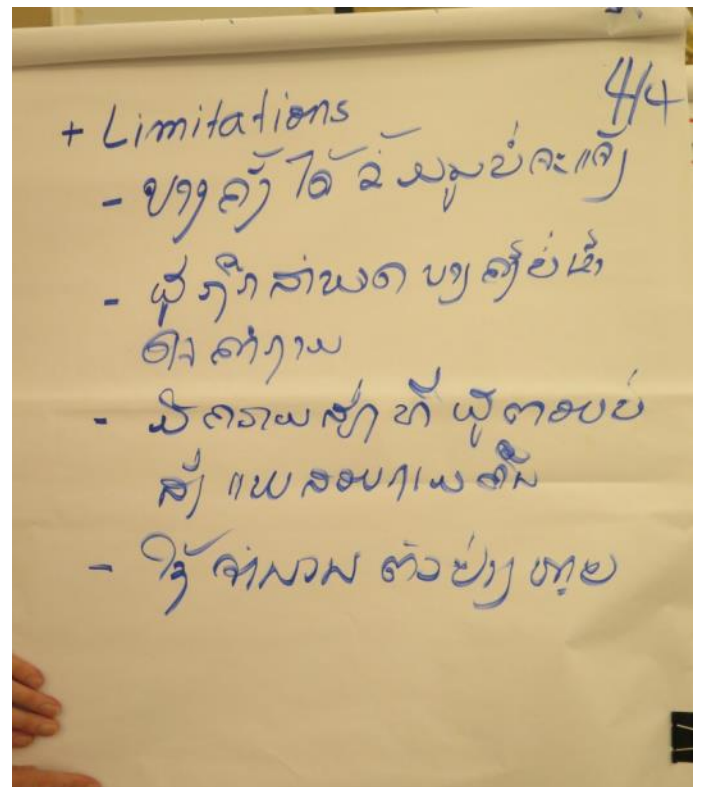 4/4
+ Limitations
- ບາງຄັ້ງ ໄດ້ ຂໍ້ມູນບໍ່ຈະແຈ້ງ
- ຜູ້ຖືກສຳພາດ ບາງຄັ້ງບໍ່ເຂົ້າ
ໃຈ ຄຳຖາມ
- ມີຄວາມສ່ຽງ ທີ່ ຜູ້ຕອບບໍ່
ສົ່ງ ແບບສອບຖາມຄືນ
- ໃຊ້ ຈຳນວນ ຕົວຢ່າງ ຫຼາຍ